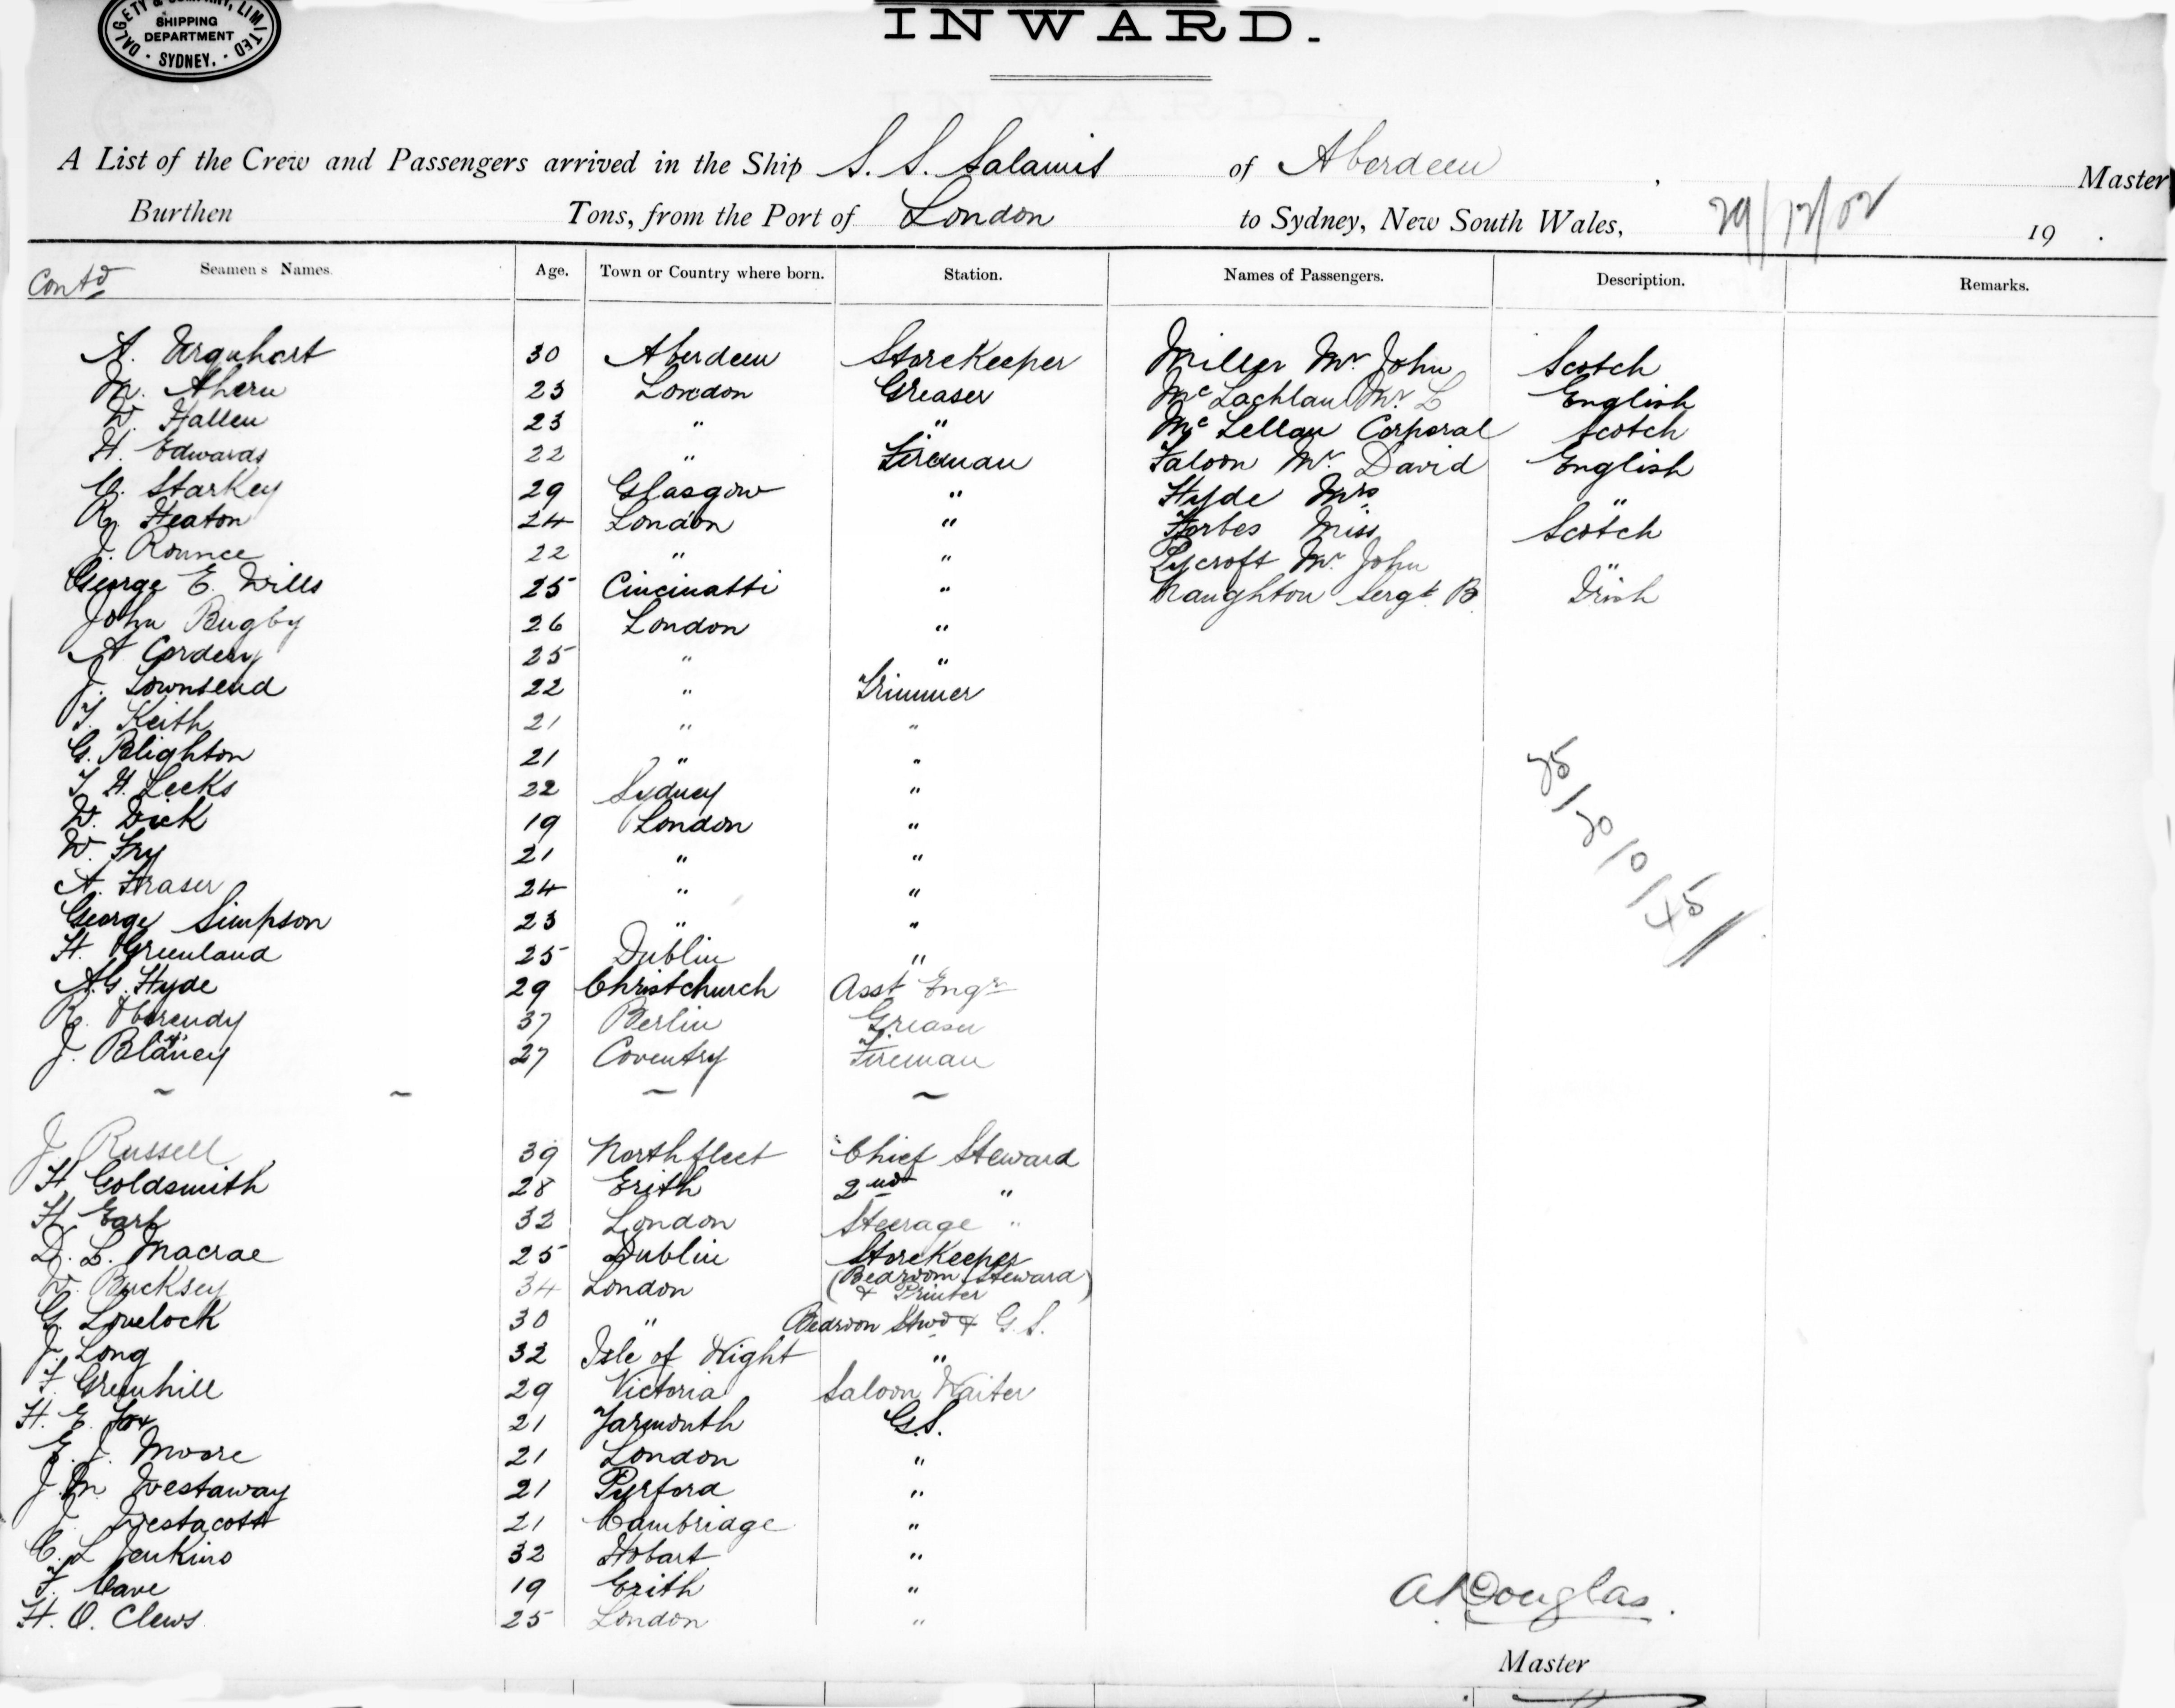 DALGETY & COMPANY, LIMITED
SHIPPING
DEPARTMENT
· SYDNEY. ·
INWARD.
A List of the Crew and Passengers arrived in the Ship S. S. Salamis of Aberdeen , Master
Burthen Tons, from the Port of London to Sydney, New South Wales, 29/12/02 19 .
Contd Seamens Names. Age. Town or Country where born. Station. Names of Passengers. Description. Remarks.
A. Urquhart 30 Aberdeen StoreKeeper Miller Mr John Scotch
M. Ahern 23 London Greaser McLachlan Mr L English
W. Hallen 23 " " McLellan Corporal Scotch
H. Edwards 22 " Fireman Faloon Mr. David English
C. Starkey 29 Glasgow " Hyde Mrs "
R. Heaton 24 London " Forbes Miss Scotch
J. Rounce 22 " " Pycroft Mr. John "
George E. Wills 25 Cincinatti " Naughton Sergt. B. Irish
John Bugby 26 London "
A Cordery 25 " "
J. Townsend 22 " Trimmer
T. Keith 21 " "
G. Blighton 21 " "
T. H. Leeks 22 Sydney "
W. Dick 19 London "
W. Fry 21 " "
A. Fraser 24 " "
George Simpson 23 " "
H. Greenland 25 Dublin "
A.G. Hyde 29 Christchurch Asst Engr
R. 37 Berlin Greaser
J. Blaney 27 Coventry Fireman
~ ~ ~ ~
J. Russell 39 Northfleet Chief Steward
H. Goldsmith 28 Erith 2nd "
H. Earl 32 London Steerage "
D. L. Macrae 25 Dublin StoreKeeper
W. Bucksey 34 London (Bedroom Steward
& Printer)
G. Lovelock 30 " Bedroon Stwd & G. S.
J. Long 32 Isle of Wight "
F. Greenhill 29 Victoria Saloon Waiter
H. E. Fox 21 Yarmouth G.S.
E. J. Moore 21 London "
J. M. Westaway 21 Pyrford "
J. Westacott 21 Cambridge "
C. L Jenkins 32 Hobart "
F. Cave 19 Erith "
H. O. Clews 25 London "
A Douglas.
Master